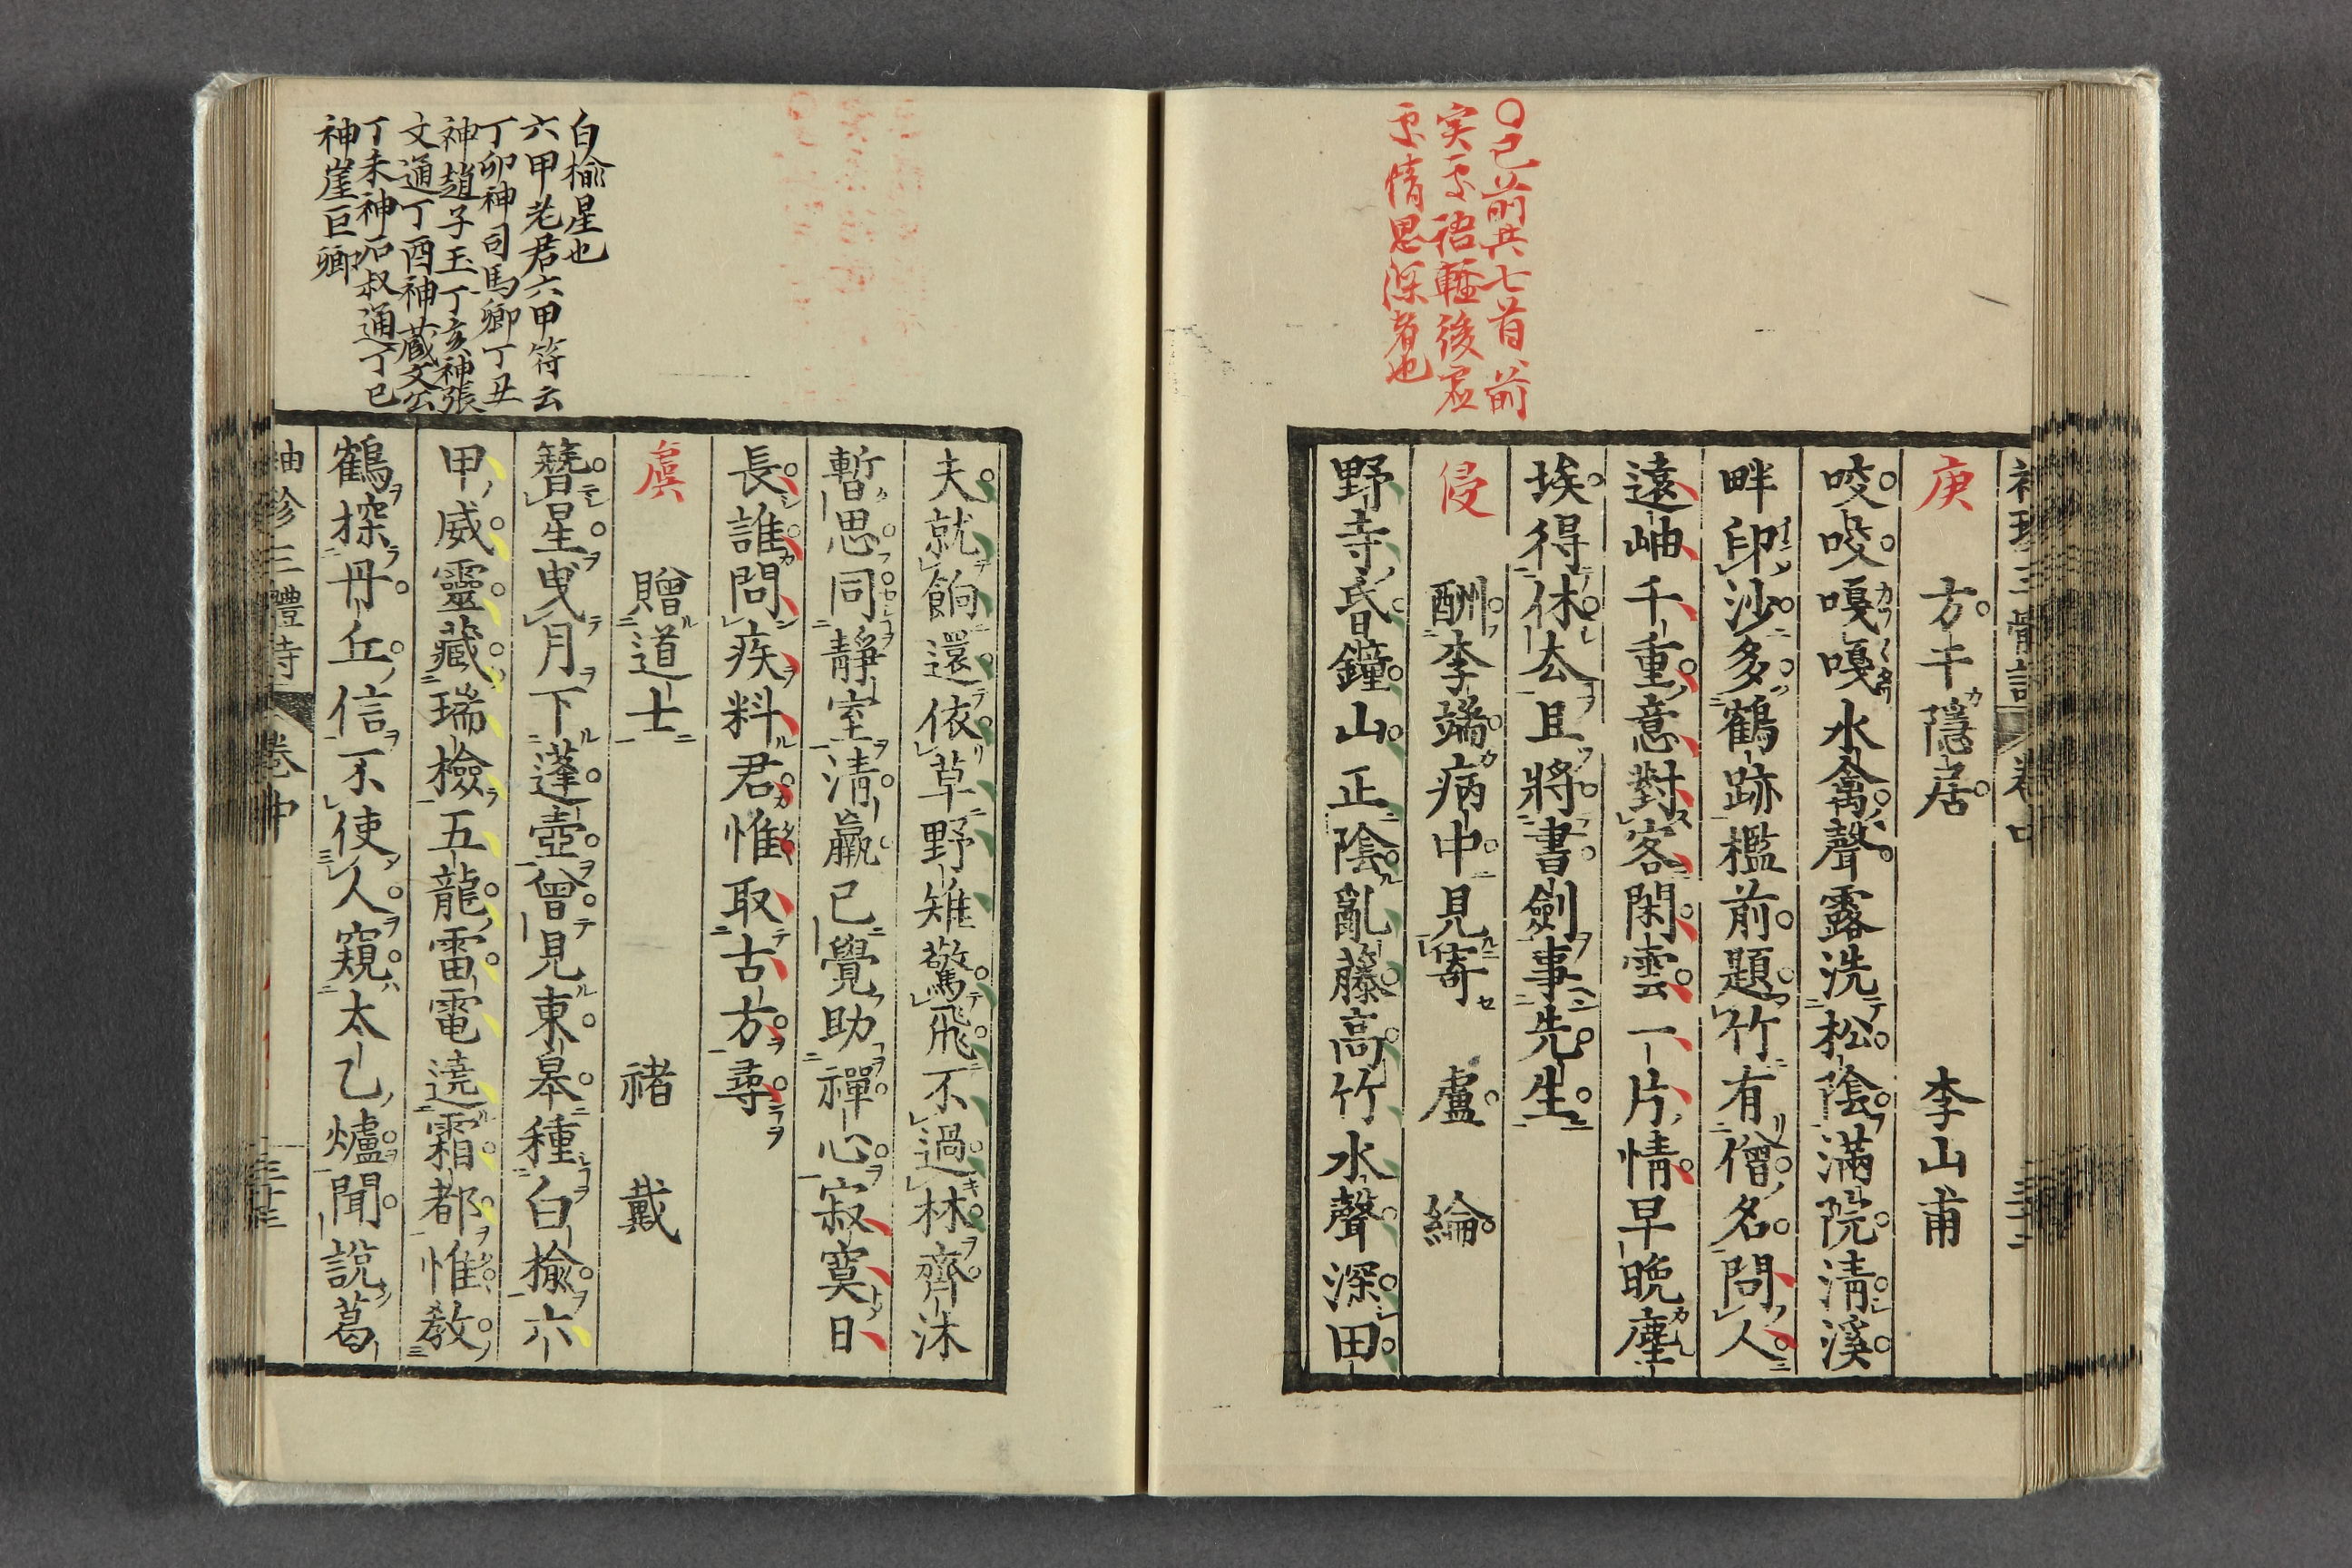 〇已前共七首前
実不语輊後虚
不情思深者也
庚 方干隱居 李山甫
咬咬嘎嘎水禽聲露洗松陰滿院淸溪
畔印沙多鶴跡檻前題竹有僧名問人
遠岫千重意對客閑雲一片情早晩塵
埃得休去且將書劍事先生
侵 酬李端病中見寄 盧綸
野寺昏鐘山正陰亂藤高竹水聲深田
夫就餉還依草野雉驚飛不過林齊沐
暫思同靜室淸羸已覺助禪心寂寞日
長誰問疾料君惟取古方尋
虞 贈道士 禇戴
簪星曳月下蓬壺曾見東皐種白楡六
甲威靈藏瑞檢五龍雷電遶霜都惟敎
鶴探丹丘信不使人窺太乙爐聞說葛
袖珍三體詩 卷中 三十三
白楡星也
六甲老君六甲符云
丁卯神司馬卿丁丑
神趙子玉丁亥神張
文通丁酉神藏文公
丁未神石叔通丁巳
神崖巨卿